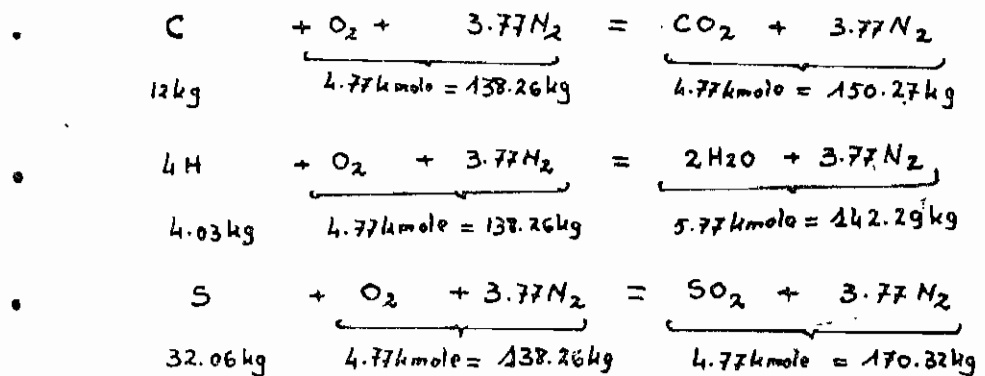 • C + O₂ + 3.77N₂ = CO₂ + 3.77N₂
12kg 4.77kmole = 138.26kg 4.77kmole = 150.27kg
• 4H + O₂ + 3.77N₂ = 2H2O + 3.77N₂
4.03kg 4.77kmole = 138.26kg 5.77kmole = 142.29kg
• S + O₂ + 3.77N₂ = SO₂ + 3.77N₂
32.06kg 4.77kmole = 138.26kg 4.77kmole = 170.32kg